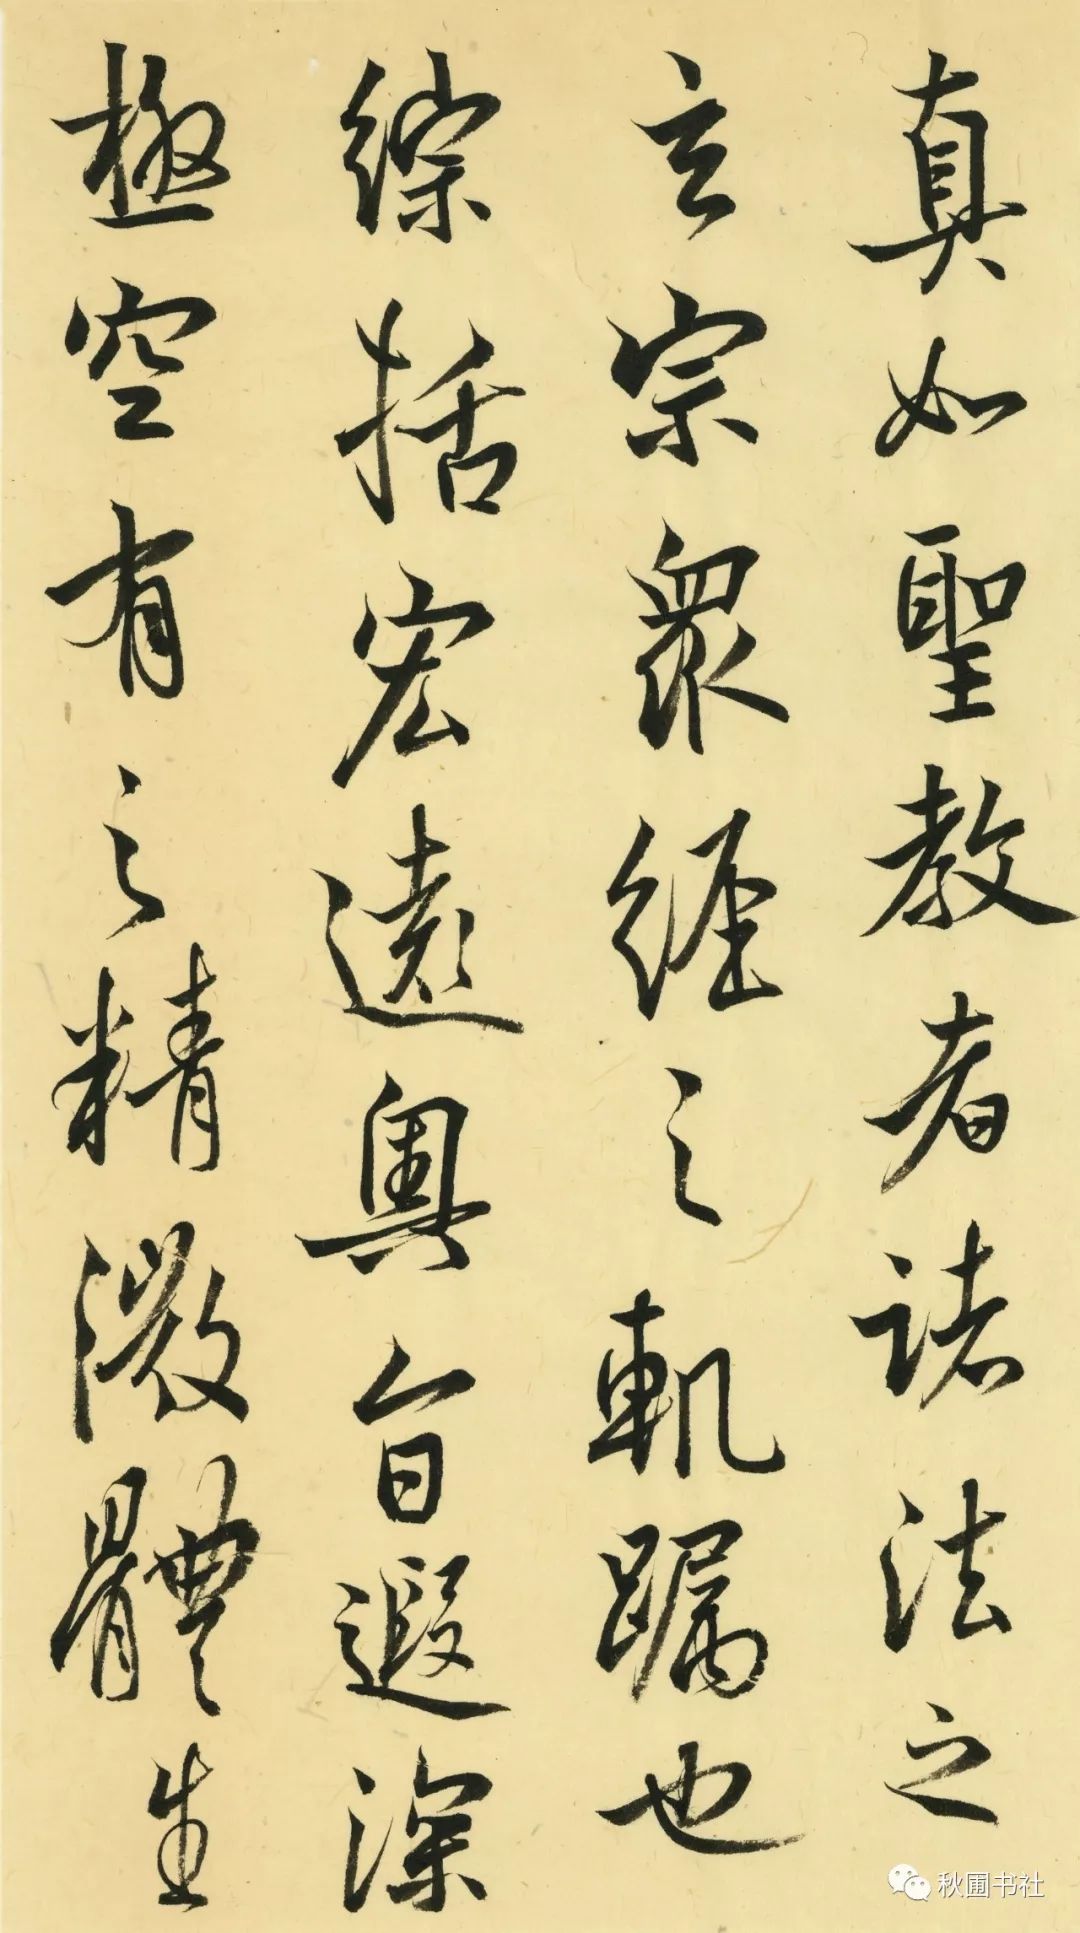 真如聖教者諸法之
玄宗衆經之軌躅也
綜括宏遠奧旨遐深
極空有之精微體生
秋圃书社